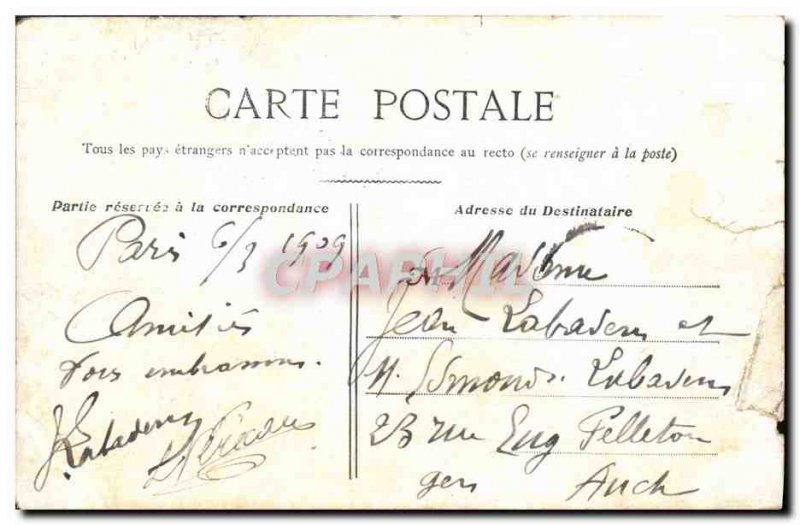 CARTE POSTALE
Tous les pays étrangers n'acceptent pas la correspondance au recto (se renseigner à la poste)
Partie réservée à la correspondance
Adresse du Destinataire
Paris 6/3 1909
Amitiés
Vous embrassons.
J Labadens
Madame
Jean Labadens et
M. Edmond Labadens
23 rue Eug Pelletan
gers Auch
CPAPHIL